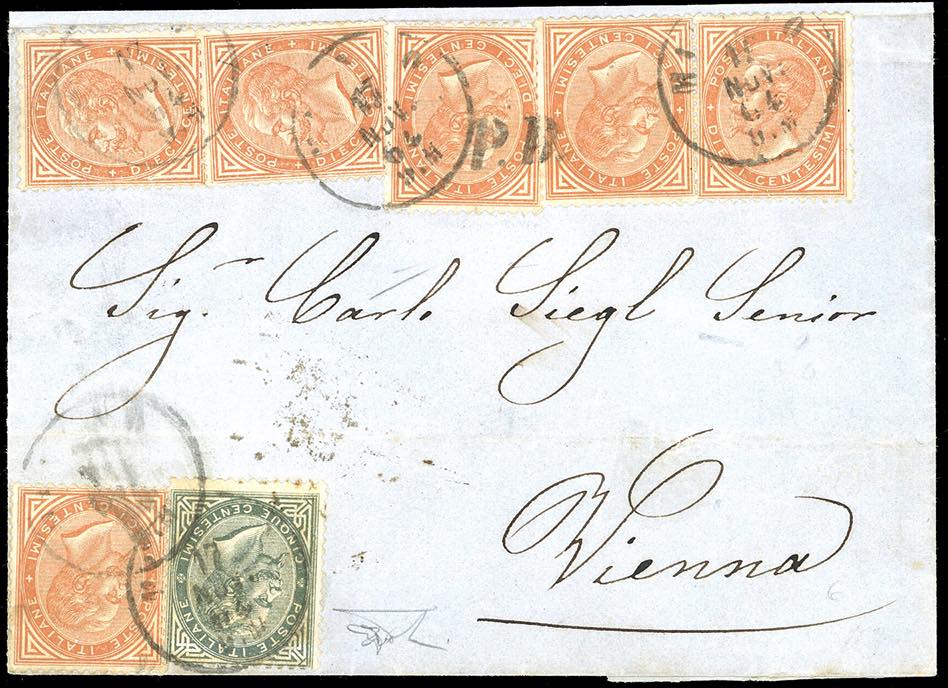 POSTE ITALIANE DIECI CENTESIMI
POSTE ITALIANE DIECI CENTESIMI
POSTE ITALIANE DIECI CENTESIMI
POSTE ITALIANE DIECI CENTESIMI
POSTE ITALIANE DIECI CENTESIMI
17
NOV.
64
Sigr. Carlo Siegl Senior
Vienna
POSTE ITALIANE CENTESIMI
POSTE ITALIANE CINQUE CENTESIMI
17
NOV.
64